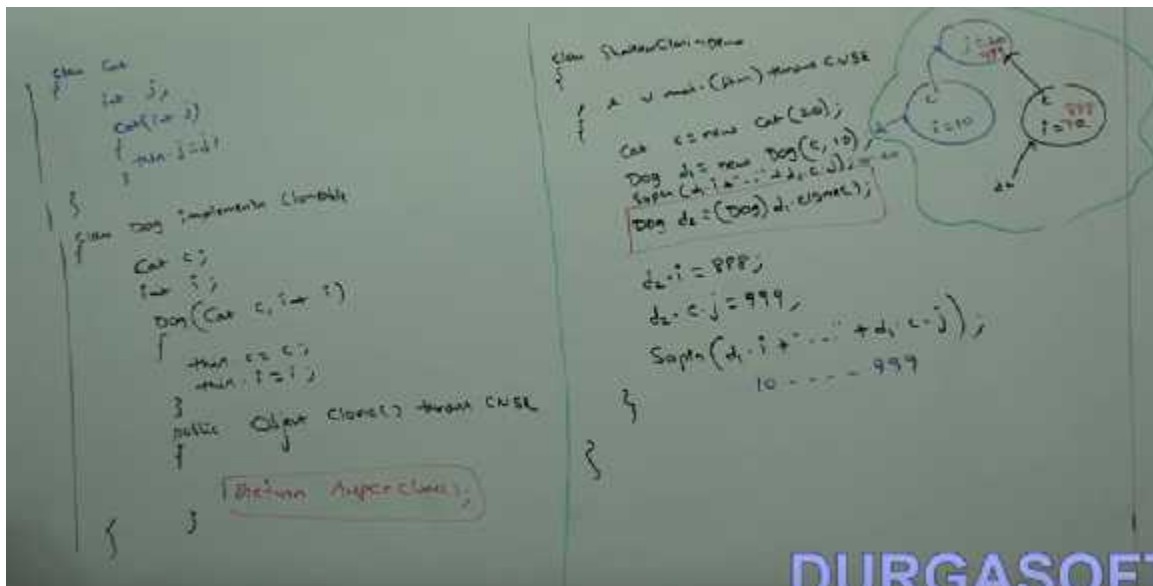 class Cat
{
int j;
Cat(int j)
{
this.j=j;
}
}
class Dog implements Cloneable
{
Cat c;
int i;
Dog(Cat c, int i)
{
this.c = c;
this.i = i;
}
public Object clone() throws CNSE
{
return super.clone();
}
}
class ShallowCloningDemo
{
p s v main(String[]) throws CNSE
{
Cat c = new Cat(20);
Dog d1 = new Dog(c, 10);
Sopln(d1.i + "..." + d1.c.j);
Dog d2 = (Dog) d1.clone();
d2.i = 888;
d2.c.j = 999;
Sopln(d1.i + "..." + d1.c.j);
10 - - - - 999
}
}
j=20
999
c
i=10
c
888
i=10
d2
DURGASOFT